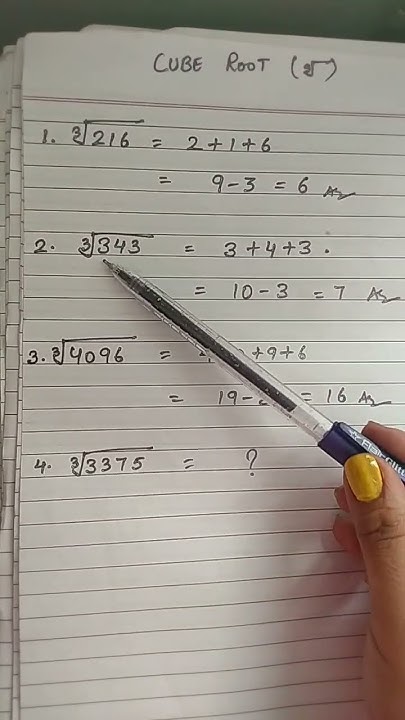 CUBE ROOT (

1. ∛216 = 2+1+6
= 9-3 = 6 Ans
2. ∛343 = 3+4+3.
= 10-3 = 7 Ans
3. ∛4096 = +9+6
= 19- = 16 Ans
4. ∛3375 = ?